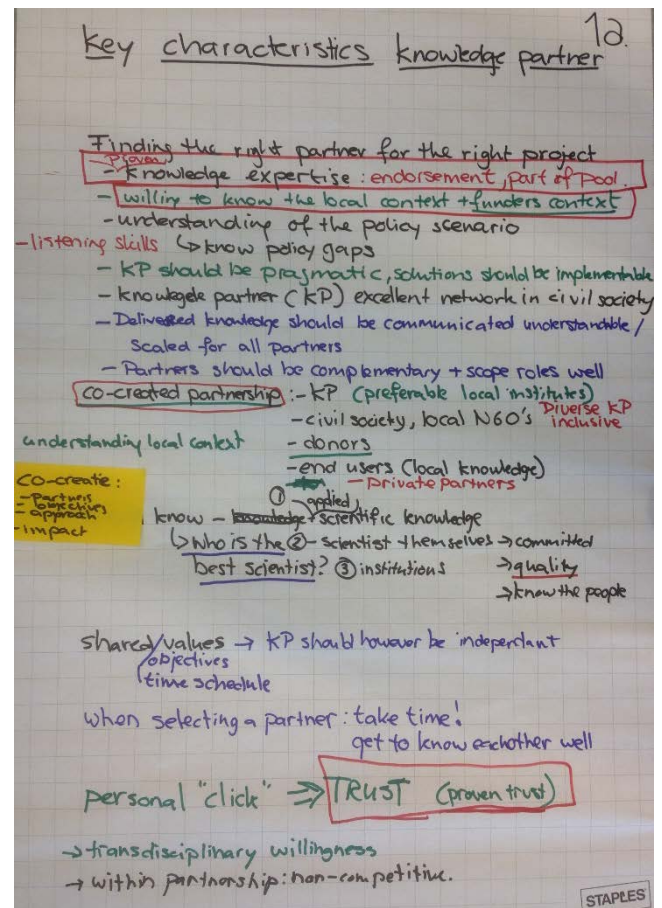 12.
Key characteristics knowledge partner
Finding the right partner for the right project
- Proven
- knowledge expertise: endorsement, part of pool.
- willing to know the local context + funders context
- understanding of the policy scenario
- listening skills ↳ know policy gaps
- KP should be pragmatic, solutions should be implementable
- knowlegele partner (KP) excellent network in civil society
- Delivered knowledge should be communicated understandable /
scaled for all partners
- Partners should be complementary + scope roles well
co-created partnership: - KP (preferable local institutes)
- civil society, local NGO's Diverse KP
inclusive
understanding local context - donors
- end users (local knowledge)
- private partners
co-create:
- partners
- objectives
- approach
- impact
① - applied,
know - knowledge + scientific knowledge
↳ who is the ② - scientist themselves → committed
best scientist? ③ institutions → quality
→ know the people
shared/values → KP should however be independant
/objectives
time schedule
when selecting a partner: take time!
get to know eachother well
personal "click" ⇒ TRUST (proven trust)
→ transdisciplinary willingness
→ within partnership: non-competitive.
STAPLES